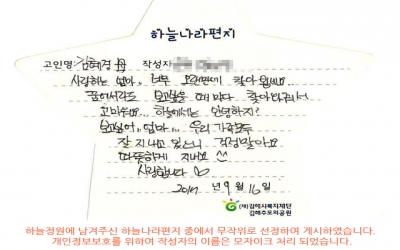 하늘나라편지
고인명: 김혜경 작성자
사랑하는 엄마.. 너무 오랜만에 찾아 왔네요
꿈에서라도 보고싶을 때마다 찾아와줘서
고마워요... 하늘에서는 안녕하지?
보고싶어.. 엄마... 우리 가족모두
잘 지내고 있으니 걱정말아요
따뜻하게 지내요
사랑합니다 ♡
2017 년 9 월 16 일
(재)김해시복지재단
김해추모의공원
하늘정원에 남겨주신 하늘나라편지 중에서 무작위로 선정하여 게시하였습니다.
개인정보보호를 위하여 작성자의 이름은 모자이크 처리 되었습니다.